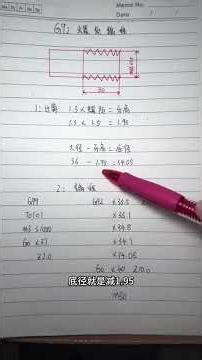 Memo No.
Date / /
G92 螺纹编程
30
1: 计算 1.3 × 螺距 = 牙高
1.3 × 1.5 = 1.95
大径 - 牙高 = 底径
36 - 1.95 = 34.05
2: 编程
G99 G92 × 35.5
T0101 × 35.1
M3 S1000 × 34.8
G0 × 37 × 34.1
Z2.0 × 34.05
G0 × 100 Z100
M30
底径就是减1.95